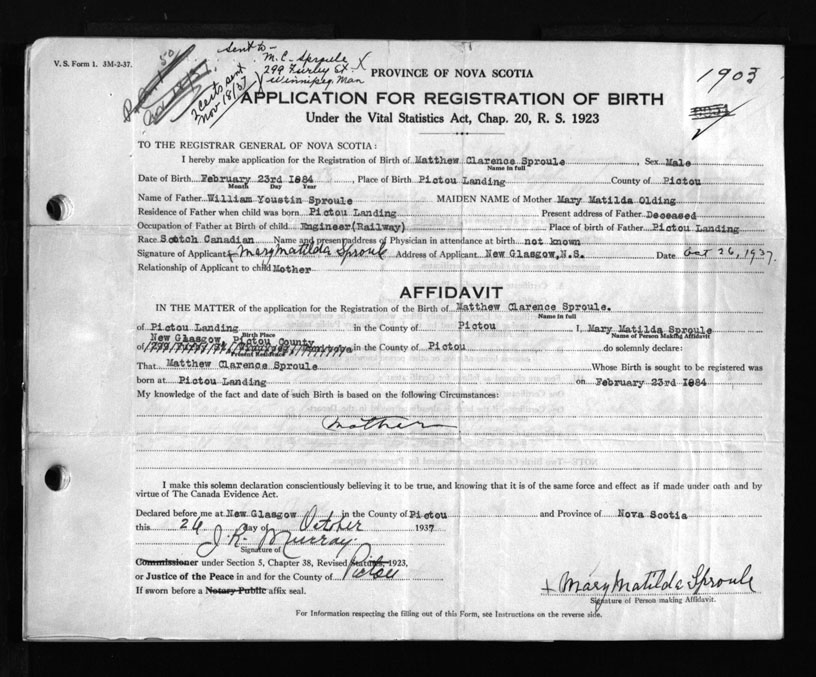 V. S. Form 1. 3M-2-37.
50
Sent to-
M. C. Sproule
299 Furley St.
Winnipeg, Man
2 certs sent
Nov 18/37
1903
PROVINCE OF NOVA SCOTIA
APPLICATION FOR REGISTRATION OF BIRTH
Under the Vital Statistics Act, Chap. 20, R. S. 1923
TO THE REGISTRAR GENERAL OF NOVA SCOTIA:
I hereby make application for the Registration of Birth of Matthew Clarence Sproule, Sex Male
Name in full
Date of Birth February 23rd I884, Place of Birth Pictou Landing County of Pictou
Month Day Year
Name of Father William Youstin Sproule MAIDEN NAME of Mother Mary Matilda Olding
Residence of Father when child was born Pictou Landing Present address of Father Deceased
Occupation of Father at Birth of child Engineer(Railway) Place of birth of Father Pictou Landing
Race Scotch Canadian Name and present address of Physician in attendance at birth not known
Signature of Applicant x Mary Matilda Sproule Address of Applicant New Glasgow,N.S. Date Oct 26, 1937.
Relationship of Applicant to child Mother
AFFIDAVIT
IN THE MATTER of the application for the Registration of the Birth of Matthew Clarence Sproule.
Name in full
of Pictou Landing in the County of Pictou I, Mary Matilda Sproule
Birth Place Name of Person Making Affidavit
New Glasgow, Pictou County
of in the County of Pictou do solemnly declare:
Present Residence
That Matthew Clarence Sproule Whose Birth is sought to be registered was
born at Pictou Landing on February 23rd I884
My knowledge of the fact and date of such Birth is based on the following Circumstances:
Mother
I make this solemn declaration conscientiously believing it to be true, and knowing that it is of the same force and effect as if made under oath and by
virtue of The Canada Evidence Act.
Declared before me at New Glasgow in the County of Pictou and Province of Nova Scotia
this 26 day of October 1937
J. R. Murray.
Signature of
Commissioner under Section 5, Chapter 38, Revised Statutes, 1923,
or Justice of the Peace in and for the County of Pictou
If sworn before a Notary Public affix seal.
x Mary Matilda Sproule
Signature of Person making Affidavit.
For Information respecting the filling out of this Form, see Instructions on the reverse side.